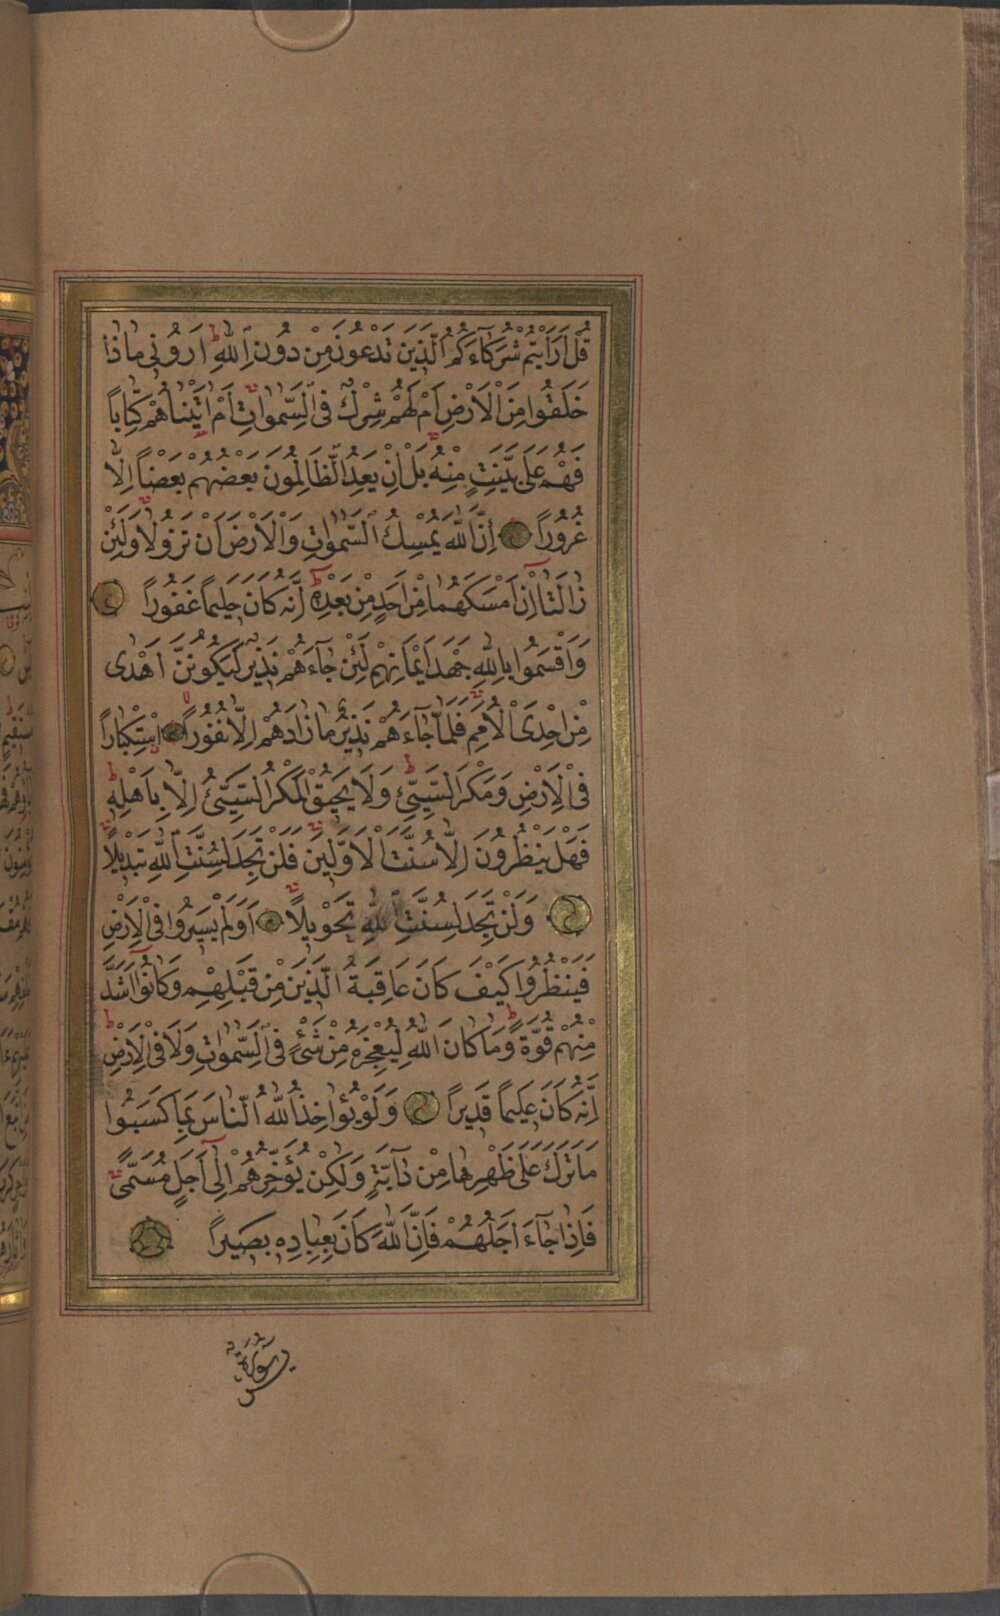 قُلْ اَرَاَيْتُمْ شُرَكَآءَكُمُ الَّذِينَ تَدْعُونَ مِنْ دُونِ اللّٰهِ اَرُونِى مَاذَا
خَلَقُوا مِنَ الْاَرْضِ اَمْ لَهُمْ شِرْكٌ فِى السَّمٰوَاتِ اَمْ اٰتَيْنَاهُمْ كِتَاباً
فَهُمْ عَلٰى بَيِّنَتٍ مِنْهُ بَلْ اِنْ يَعِدُ الظَّالِمُونَ بَعْضُهُمْ بَعْضاً اِلَّا
غُرُوراً اِنَّ اللّٰهَ يُمْسِكُ السَّمٰوَاتِ وَالْاَرْضَ اَنْ تَزُولَا وَلَئِنْ
زَالَتَا اِنْ اَمْسَكَهُمَا مِنْ اَحَدٍ مِنْ بَعْدِهِ اِنَّهُ كَانَ حَلِيماً غَفُوراً
وَاَقْسَمُوا بِاللّٰهِ جَهْدَ اَيْمَانِهِمْ لَئِنْ جَآءَهُمْ نَذِيرٌ لَيَكُونُنَّ اَهْدٰى
مِنْ اِحْدَى الْاُمَمِ فَلَمَّا جَآءَهُمْ نَذِيرٌ مَا زَادَهُمْ اِلَّا نُفُوراً اسْتِكْبَاراً
فِى الْاَرْضِ وَمَكْرَ السَّيِّئِ وَلَا يَحِيقُ الْمَكْرُ السَّيِّئُ اِلَّا بِاَهْلِهِ
فَهَلْ يَنْظُرُونَ اِلَّا سُنَّتَ الْاَوَّلِينَ فَلَنْ تَجِدَ لِسُنَّتِ اللّٰهِ تَبْدِيلاً
وَلَنْ تَجِدَ لِسُنَّتِ اللّٰهِ تَحْوِيلاً اَوَلَمْ يَسِيرُوا فِى الْاَرْضِ
فَيَنْظُرُوا كَيْفَ كَانَ عَاقِبَةُ الَّذِينَ مِنْ قَبْلِهِمْ وَكَانُوا اَشَدَّ
مِنْهُمْ قُوَّةً وَمَا كَانَ اللّٰهُ لِيُعْجِزَهُ مِنْ شَىْءٍ فِى السَّمٰوَاتِ وَلَا فِى الْاَرْضِ
اِنَّهُ كَانَ عَلِيماً قَدِيراً وَلَوْ يُؤَاخِذُ اللّٰهُ النَّاسَ بِمَا كَسَبُوا
مَا تَرَكَ عَلٰى ظَهْرِهَا مِنْ دَآبَّةٍ وَلٰكِنْ يُؤَخِّرُهُمْ اِلٰى اَجَلٍ مُسَمًّى
فَاِذَا جَآءَ اَجَلُهُمْ فَاِنَّ اللّٰهَ كَانَ بِعِبَادِهِ بَصِيراً
سُورَةُ يس